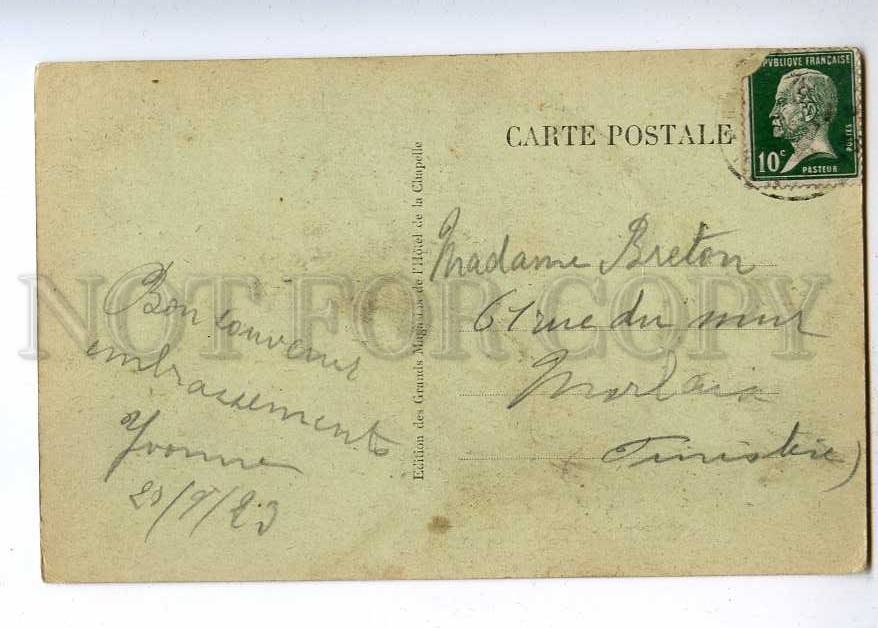 CARTE POSTALE
RÉPUBLIQUE FRANÇAISE
POSTES
10c
PASTEUR
Edition des Grands Magasins de l'Hôtel de la Chapelle
Bon souvenir
embrassements
Yvonne
/9/23
Madame Breton
61 rue du mur
Morlaix
Finistère)
NOT FOR COPY